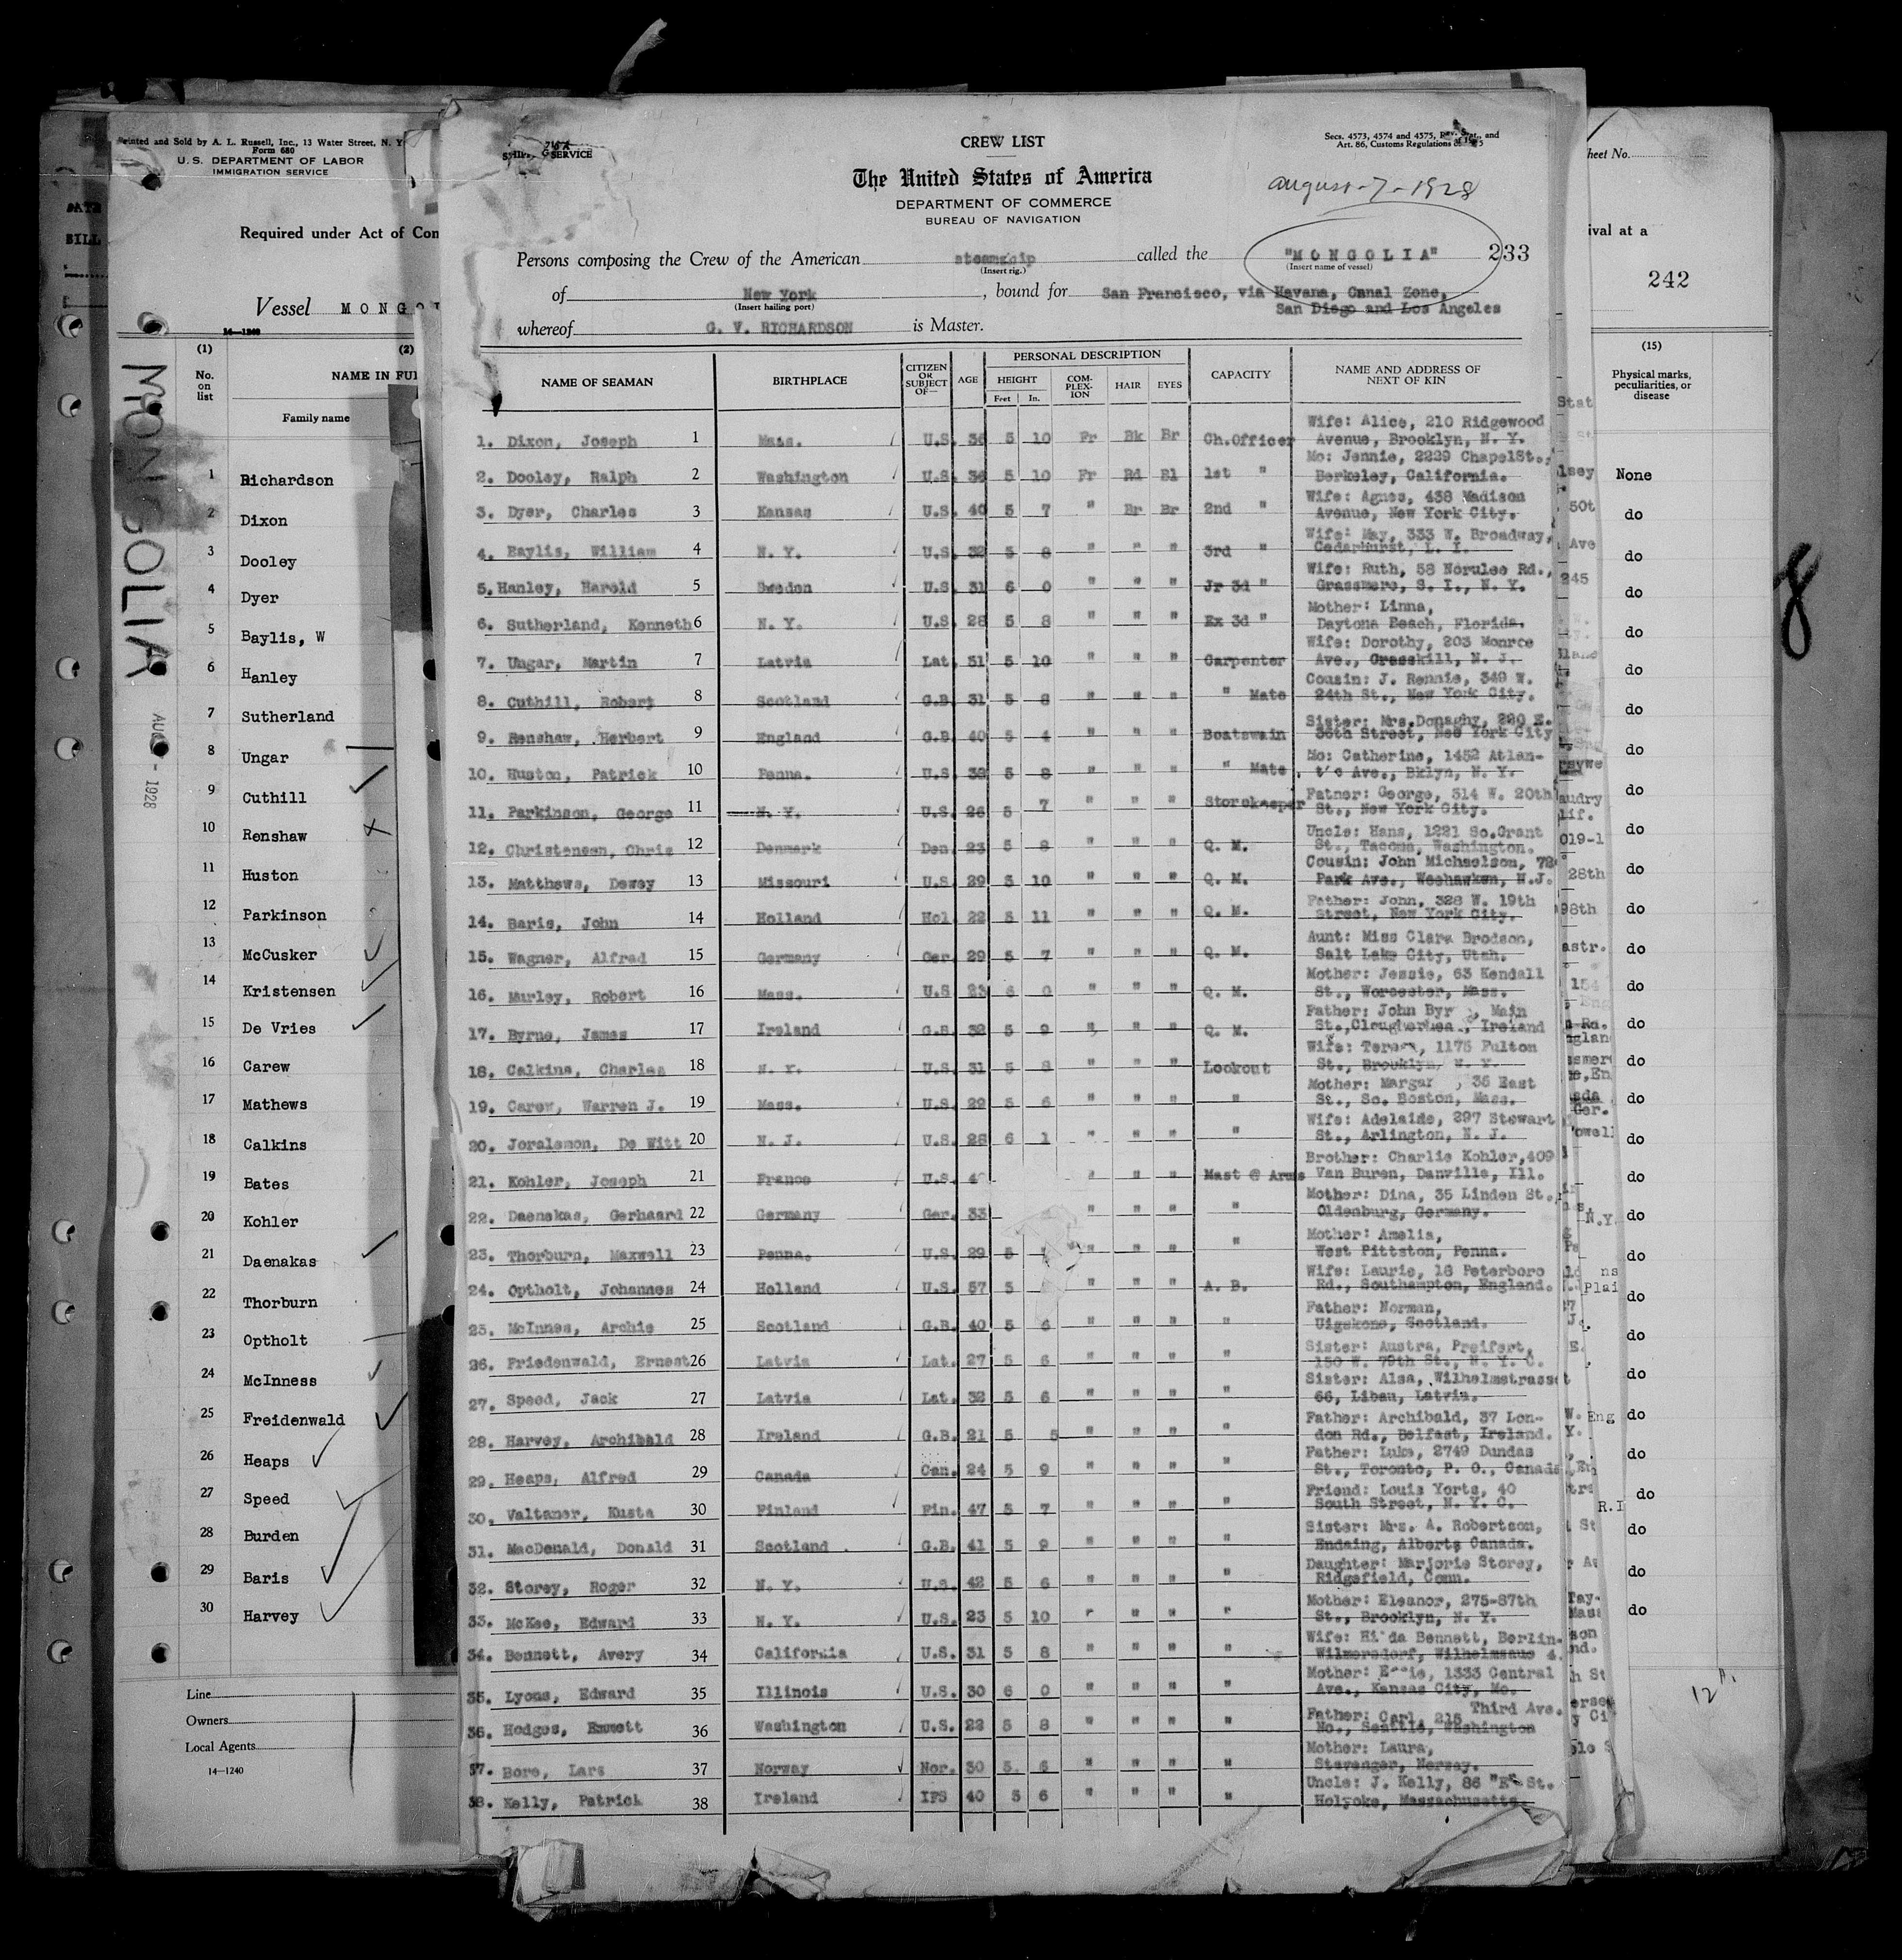 Printed and Sold by A. L. Russell, Inc., 13 Water Street, N. Y
Form 680
U. S. DEPARTMENT OF LABOR
IMMIGRATION SERVICE
Required under Act of Con
Vessel MONGO
14—1240
(1) (2)
No. on list NAME IN FUL
Family name
1 Richardson
2 Dixon
3 Dooley
4 Dyer
5 Baylis, W
6 Hanley
7 Sutherland
8 Ungar
9 Cuthill
10 Renshaw
11 Huston
12 Parkinson
13 McCusker
14 Kristensen
15 De Vries
16 Carew
17 Mathews
18 Calkins
19 Bates
20 Kohler
21 Daenakas
22 Thorburn
23 Optholt
24 McInness
25 Freidenwald
26 Heaps
27 Speed
28 Burden
29 Baris
30 Harvey
Line
Owners
Local Agents
14—1240
MONGOLIA
AUG - 1928
BILL
SERVICE
CREW LIST
Secs. 4573, 4574 and 4575, Rev. Stat., and
Art. 86, Customs Regulations of 1915
The United States of America
DEPARTMENT OF COMMERCE
BUREAU OF NAVIGATION
August-7-1928
Persons composing the Crew of the American steamship called the "MONGOLIA" 233
(Insert rig.) (Insert name of vessel)
of New York, bound for San Francisco, via Havana, Canal Zone,
(Insert hailing port) San Diego and Los Angeles
whereof G. V. RICHARDSON is Master.
NAME OF SEAMAN BIRTHPLACE CITIZEN OR SUBJECT OF— AGE PERSONAL DESCRIPTION CAPACITY NAME AND ADDRESS OF NEXT OF KIN
HEIGHT COM-PLEX-ION HAIR EYES
Feet In.
1. Dixon, Joseph 1 Mass. U.S. 36 5 10 Fr Bk Br Ch.Officer Wife: Alice, 210 Ridgewood
Avenue, Brooklyn, N. Y.
2. Dooley, Ralph 2 Washington U.S. 36 5 10 Fr Rd Bl 1st " Mo: Jennie, 2229 ChapelSt.,
Berkeley, California.
3. Dyer, Charles 3 Kansas U.S. 40 5 7 " Br Br 2nd " Wife: Agnes, 438 Madison
Avenue, New York City.
4. Baylis, William 4 N. Y. U.S. 32 5 8 " " " 3rd " Wife: May, 333 W. Broadway,
Cedarhurst, L. I.
5. Hanley, Harold 5 Sweden U.S. 31 6 0 " " " Jr 3d " Wife: Ruth, 58 Norulee Rd.,
Grassmere, S. I., N. Y.
6. Sutherland, Kenneth 6 N. Y. U.S. 28 5 8 " " " Ex 3d " Mother: Linna,
Daytona Beach, Florida.
7. Ungar, Martin 7 Latvia Lat. 31 5 10 " " " Carpenter Wife: Dorothy, 203 Monroe
Ave., Cresskill, N. J.
8. Cuthill, Robert 8 Scotland G.B. 31 5 8 " " " " Mate Cousin: J. Rennie, 349 W.
24th St., New York City.
9. Renshaw, Herbert 9 England G.B. 40 5 4 " " " Boatswain Sister: Mrs.Donaghy, 220 E.
36th Street, New York City
10. Huston, Patrick 10 Penna. U.S. 38 5 8 " " " " Mate Mo: Catherine, 1452 Atlan-
t'c Ave., Bklyn, N. Y.
11. Parkinson, George 11 N. Y. U.S. 26 5 7 " " " Storekeeper Father: George, 314 W. 20th
St., New York City.
12. Christensen, Chris 12 Denmark Den. 23 5 8 " " " Q. M. Uncle: Hans, 1221 So.Grant
St., Tacoma, Washington.
13. Matthews, Dewey 13 Missouri U.S. 29 5 10 " " " Q. M. Cousin: John Michaelson, 72
Park Ave., Weehawken, N.J.
14. Baris, John 14 Holland Hol. 22 5 11 " " " Q. M. Father: John, 328 W. 19th
Street, New York City.
15. Wagner, Alfred 15 Germany Ger. 29 5 7 " " " Q. M. Aunt: Miss Clara Brodson,
Salt Lake City, Utah.
16. Murley, Robert 16 Mass. U.S 23 6 0 " " " Q. M. Mother: Jessie, 63 Kendall
St., Worcester, Mass.
17. Byrne, James 17 Ireland G.B. 32 5 9 " " " Q. M. Father: John Byr , Main
St., Ireland
18. Calkins, Charles 18 N. Y. U.S. 31 5 8 " " " Lookout Wife: Teresa, 1175 Fulton
St., Brooklyn, N. Y.
19. Carew, Warren J. 19 Mass. U.S. 29 5 6 " " " " Mother: Margar , 35 East
St., So. Boston, Mass.
20. Joralemon, De Witt 20 N. J. U.S. 28 6 1 " " " " Wife: Adelaide, 297 Stewart
St., Arlington, N. J.
21. Kohler, Joseph 21 France U.S. " " " Mast @ Arms Brother: Charlie Kohler,409
Van Buren, Danville, Ill.
22. Daenekas, Gerhaard 22 Germany Ger. 33 " " " " Mother: Dina, 35 Linden St.,
Oldenburg, Germany.
23. Thorburn, Maxwell 23 Penna. U.S. 29 5 " " " " Mother: Amelia,
West Pittston, Penna.
24. Optholt, Johannes 24 Holland U.S. 57 5 " " " A. B. Wife: Laurie, 16 Peterboro
Rd., Southampton, England.
25. McInnes, Archie 25 Scotland G.B. 40 5 6 " " " " Father: Norman,
Uigskone, Scotland.
26. Friedenwald, Ernest 26 Latvia Lat. 27 5 6 " " " " Sister: Austra, Preifert,
150 W. 79th St., N. Y. C.
27. Speed, Jack 27 Latvia Lat. 32 5 6 " " " " Sister: Alsa, Wilhelmstrasse
66, Libau, Latvia.
28. Harvey, Archibald 28 Ireland G.B. 21 5 5 " " " " Father: Archibald, 37 Lon-
don Rd., Belfast, Ireland.
29. Heaps, Alfred 29 Canada Can. 24 5 9 " " " " Father: Luke, 2749 Dundas
St., Toronto, P. O., Canada
30. Valtamer, Kusta 30 Finland Fin. 47 5 7 " " " " Friend: Louis Yorts, 40
South Street, N. Y. C.
31. MacDonald, Donald 31 Scotland G.B. 41 5 9 " " " " Sister: Mrs. A. Robertson,
Endaing, Alberta Canada.
32. Storey, Roger 32 N. Y. U.S. 42 5 6 " " " " Daughter: Marjorie Storey,
Ridgefield, Conn.
33. McKee, Edward 33 N. Y. U.S. 23 5 10 " " " " Mother: Eleanor, 275-87th
St., Brooklyn, N. Y.
34. Bennett, Avery 34 California U.S. 31 5 8 " " " " Wife: Hilda Bennett, Berlin-
Wilmersdorf, 4.
35. Lyons, Edward 35 Illinois U.S. 30 6 0 " " " " Mother: 1333 Central
Ave., Kansas City, Mo.
36. Hodges, Emmett 36 Washington U.S. 22 5 8 " " " " Father: Carl, 215 Third Ave.
No., Seattle, Washington
37. Bore, Lars 37 Norway Nor. 30 5 6 " " " " Mother: Laura,
Stavanger, Norway.
38. Kelly, Patrick 38 Ireland IFS 40 5 6 " " " " Uncle: J. Kelly, 86 "E" St.
Holyoke, Massachusetts.
heet No.
ival at a
242
(15)
Physical marks, peculiarities, or disease
None
do
do
do
do
do
do
do
do
do
do
do
do
do
do
do
do
do
do
do
do
do
do
do
do
do
do
do
do
do
12
8